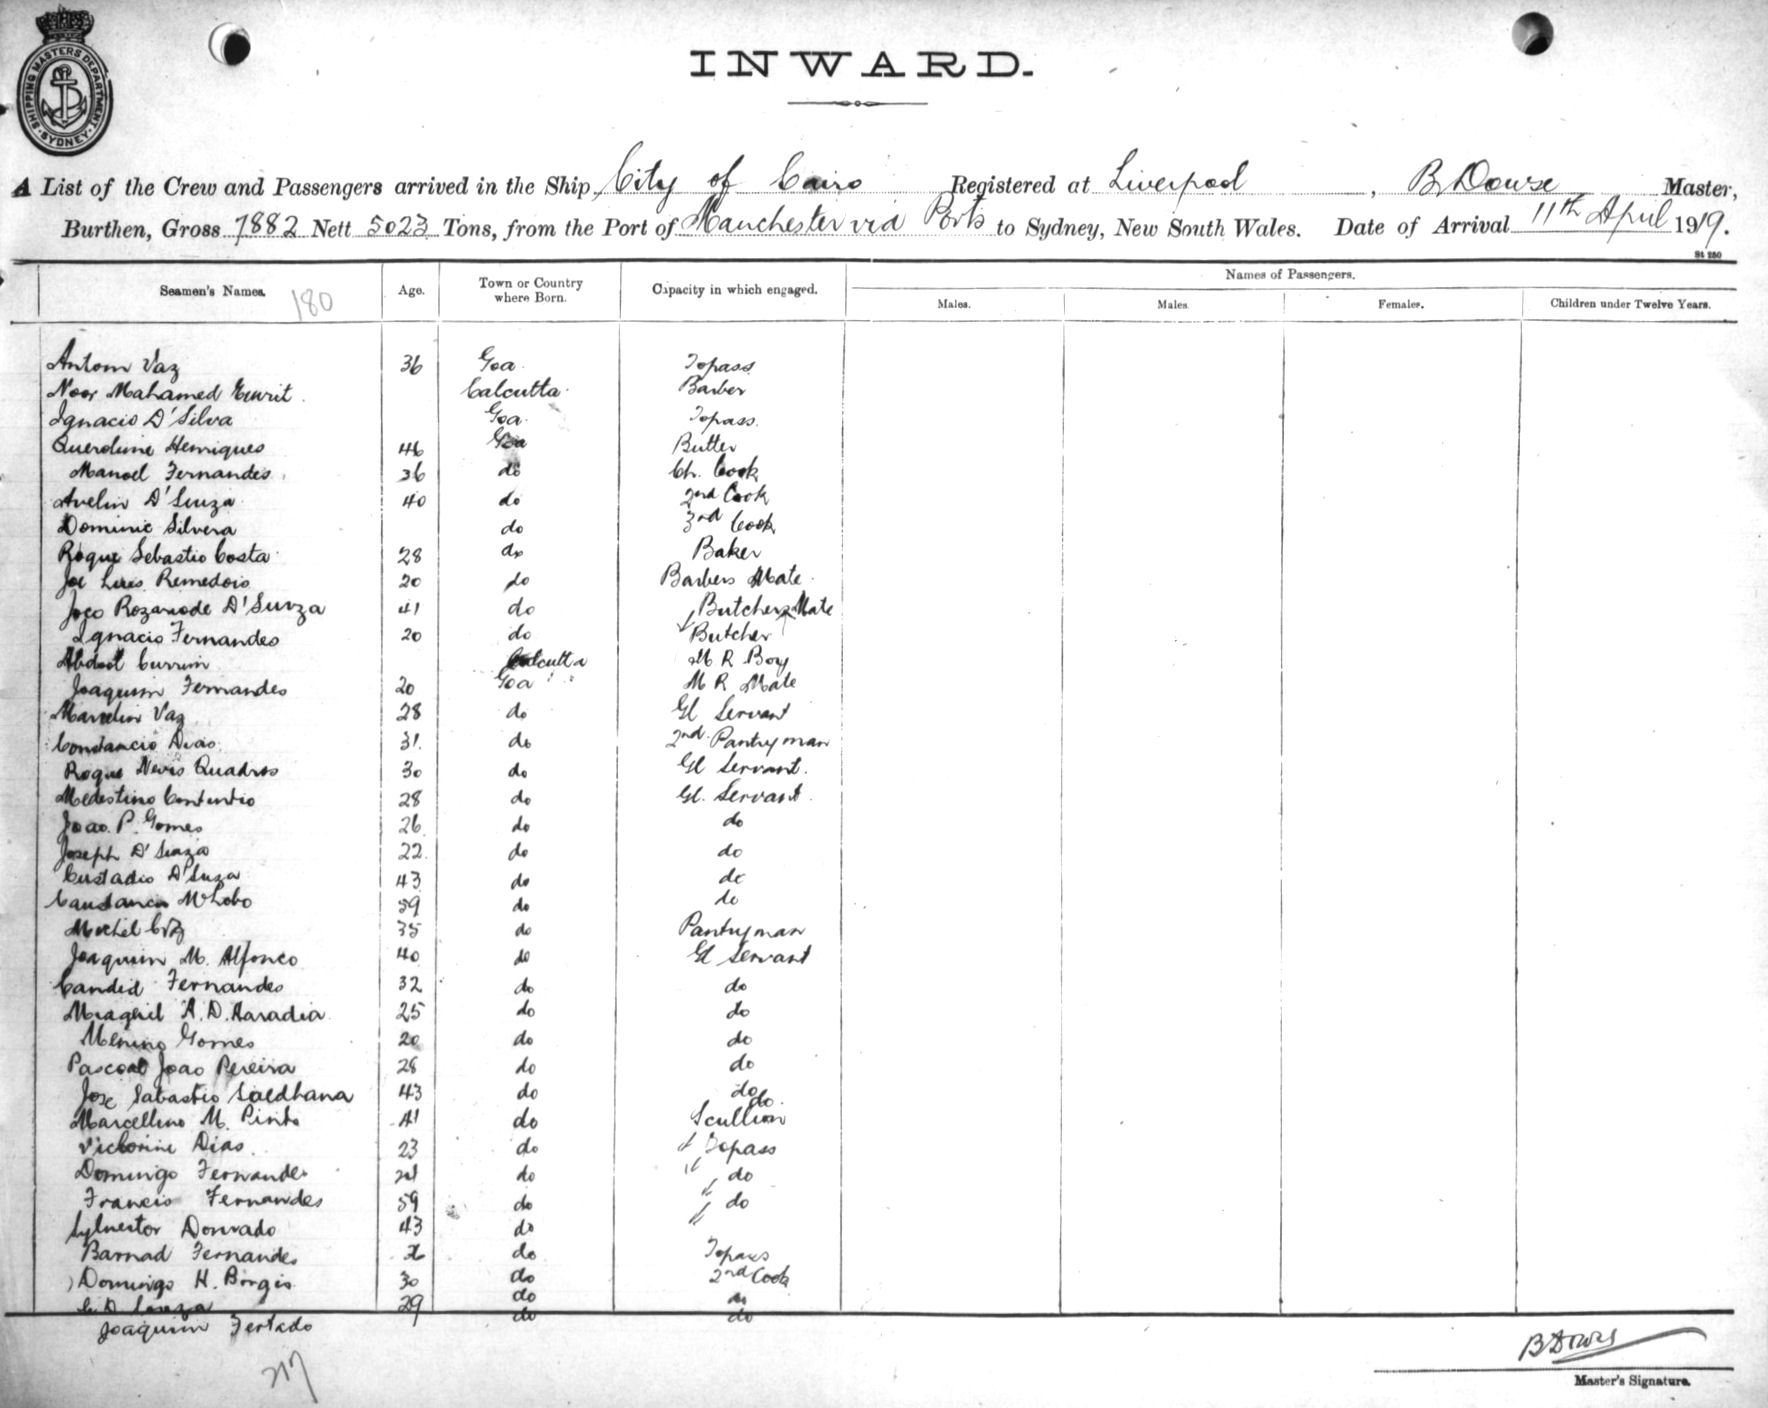 SHIPPING MASTERS DEPARTMENT. SYDNEY.
INWARD.
A List of the Crew and Passengers arrived in the Ship City of Cairo Registered at Liverpool, B. Dowse Master,
Burthen, Gross 7882 Nett 5023 Tons, from the Port of Manchester via Ports to Sydney, New South Wales. Date of Arrival 11th April 1919.
St 250
Seamen's Names. 180 Age. Town or Country where Born. Capacity in which engaged. Names of Passengers.
Males. Males. Females. Children under Twelve Years.
Antom Vaz 36 Goa Topass
Noor Mahamed Calcutta Barber
Ignacio D'Silva Goa Topass
Henriques 46 Goa Butler
Manoel Fernandes 36 do Ch. Cook
Avelin D'Souza 40 do 2nd Cook
Dominic Silvera do 3rd Cook
Roque Sebastio Costa 28 do Baker
Joe Luis Remedois 20 do Barbers Mate
D'Souza 41 do Butchers Mate
Ignacio Fernandes 20 do Butcher
Abdool Currim Calcutta M R Boy
Joaquim Fernandes 20 Goa M R Mate
Marcelin Vaz 28 do Gl Servant
Constancio Dias 31 do 2nd Pantryman
Roque Nevis Quadros 30 do Gl Servant.
28 do Gl. Servant.
Joao. P. Gomes 26 do do
Joseph D'Souza 22 do do
Custadio D'Suza 43 do do
59 do do
Michel 35 do Pantryman
Joaquim M. Alfonco 40 do Gl Servant
Candid Fernandes 32 do do
A. D. 25 do do
Menino Gomes 20 do do
Pascoal Joao Pereira 28 do do
Jose Sabastio Saldhana 43 do do
do.
Marcellino M. Pinto 41 do Scullion
Victorini Dias 23 do Topass
Domingo Fernandes do do
Francis Fernandes 59 do do
Sylvestor Dourado 43 do
Barnad Fernandes do Topass
Domingo H. Borgis 30 do 2nd Cook
29 do do
Joaquim Fertado do do
217
B Dowse
Master's Signature.